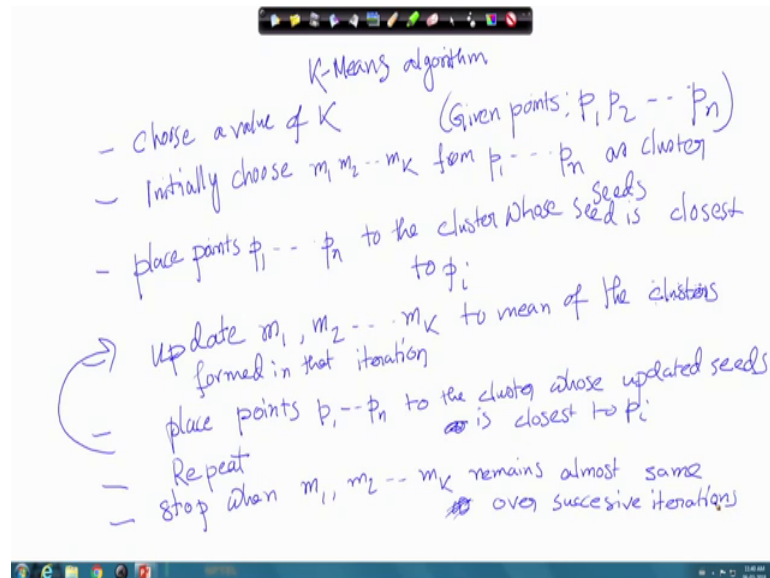 K-Means algorithm
- Choose a value of K (Given points: p1 p2 -- pn)
- Initially choose m1 m2 -- mK from p1 --- pn as cluster
seeds
- place points p1 --- pn to the cluster whose seed is closest
to pi
update m1, m2 --- mK to mean of the clusters
formed in that iteration
- place points p1 -- pn to the cluster whose updated seeds
is closest to pi
- Repeat
- stop when m1, m2 -- mK remains almost same
over succesive iterations
NPTEL
11:40 AM